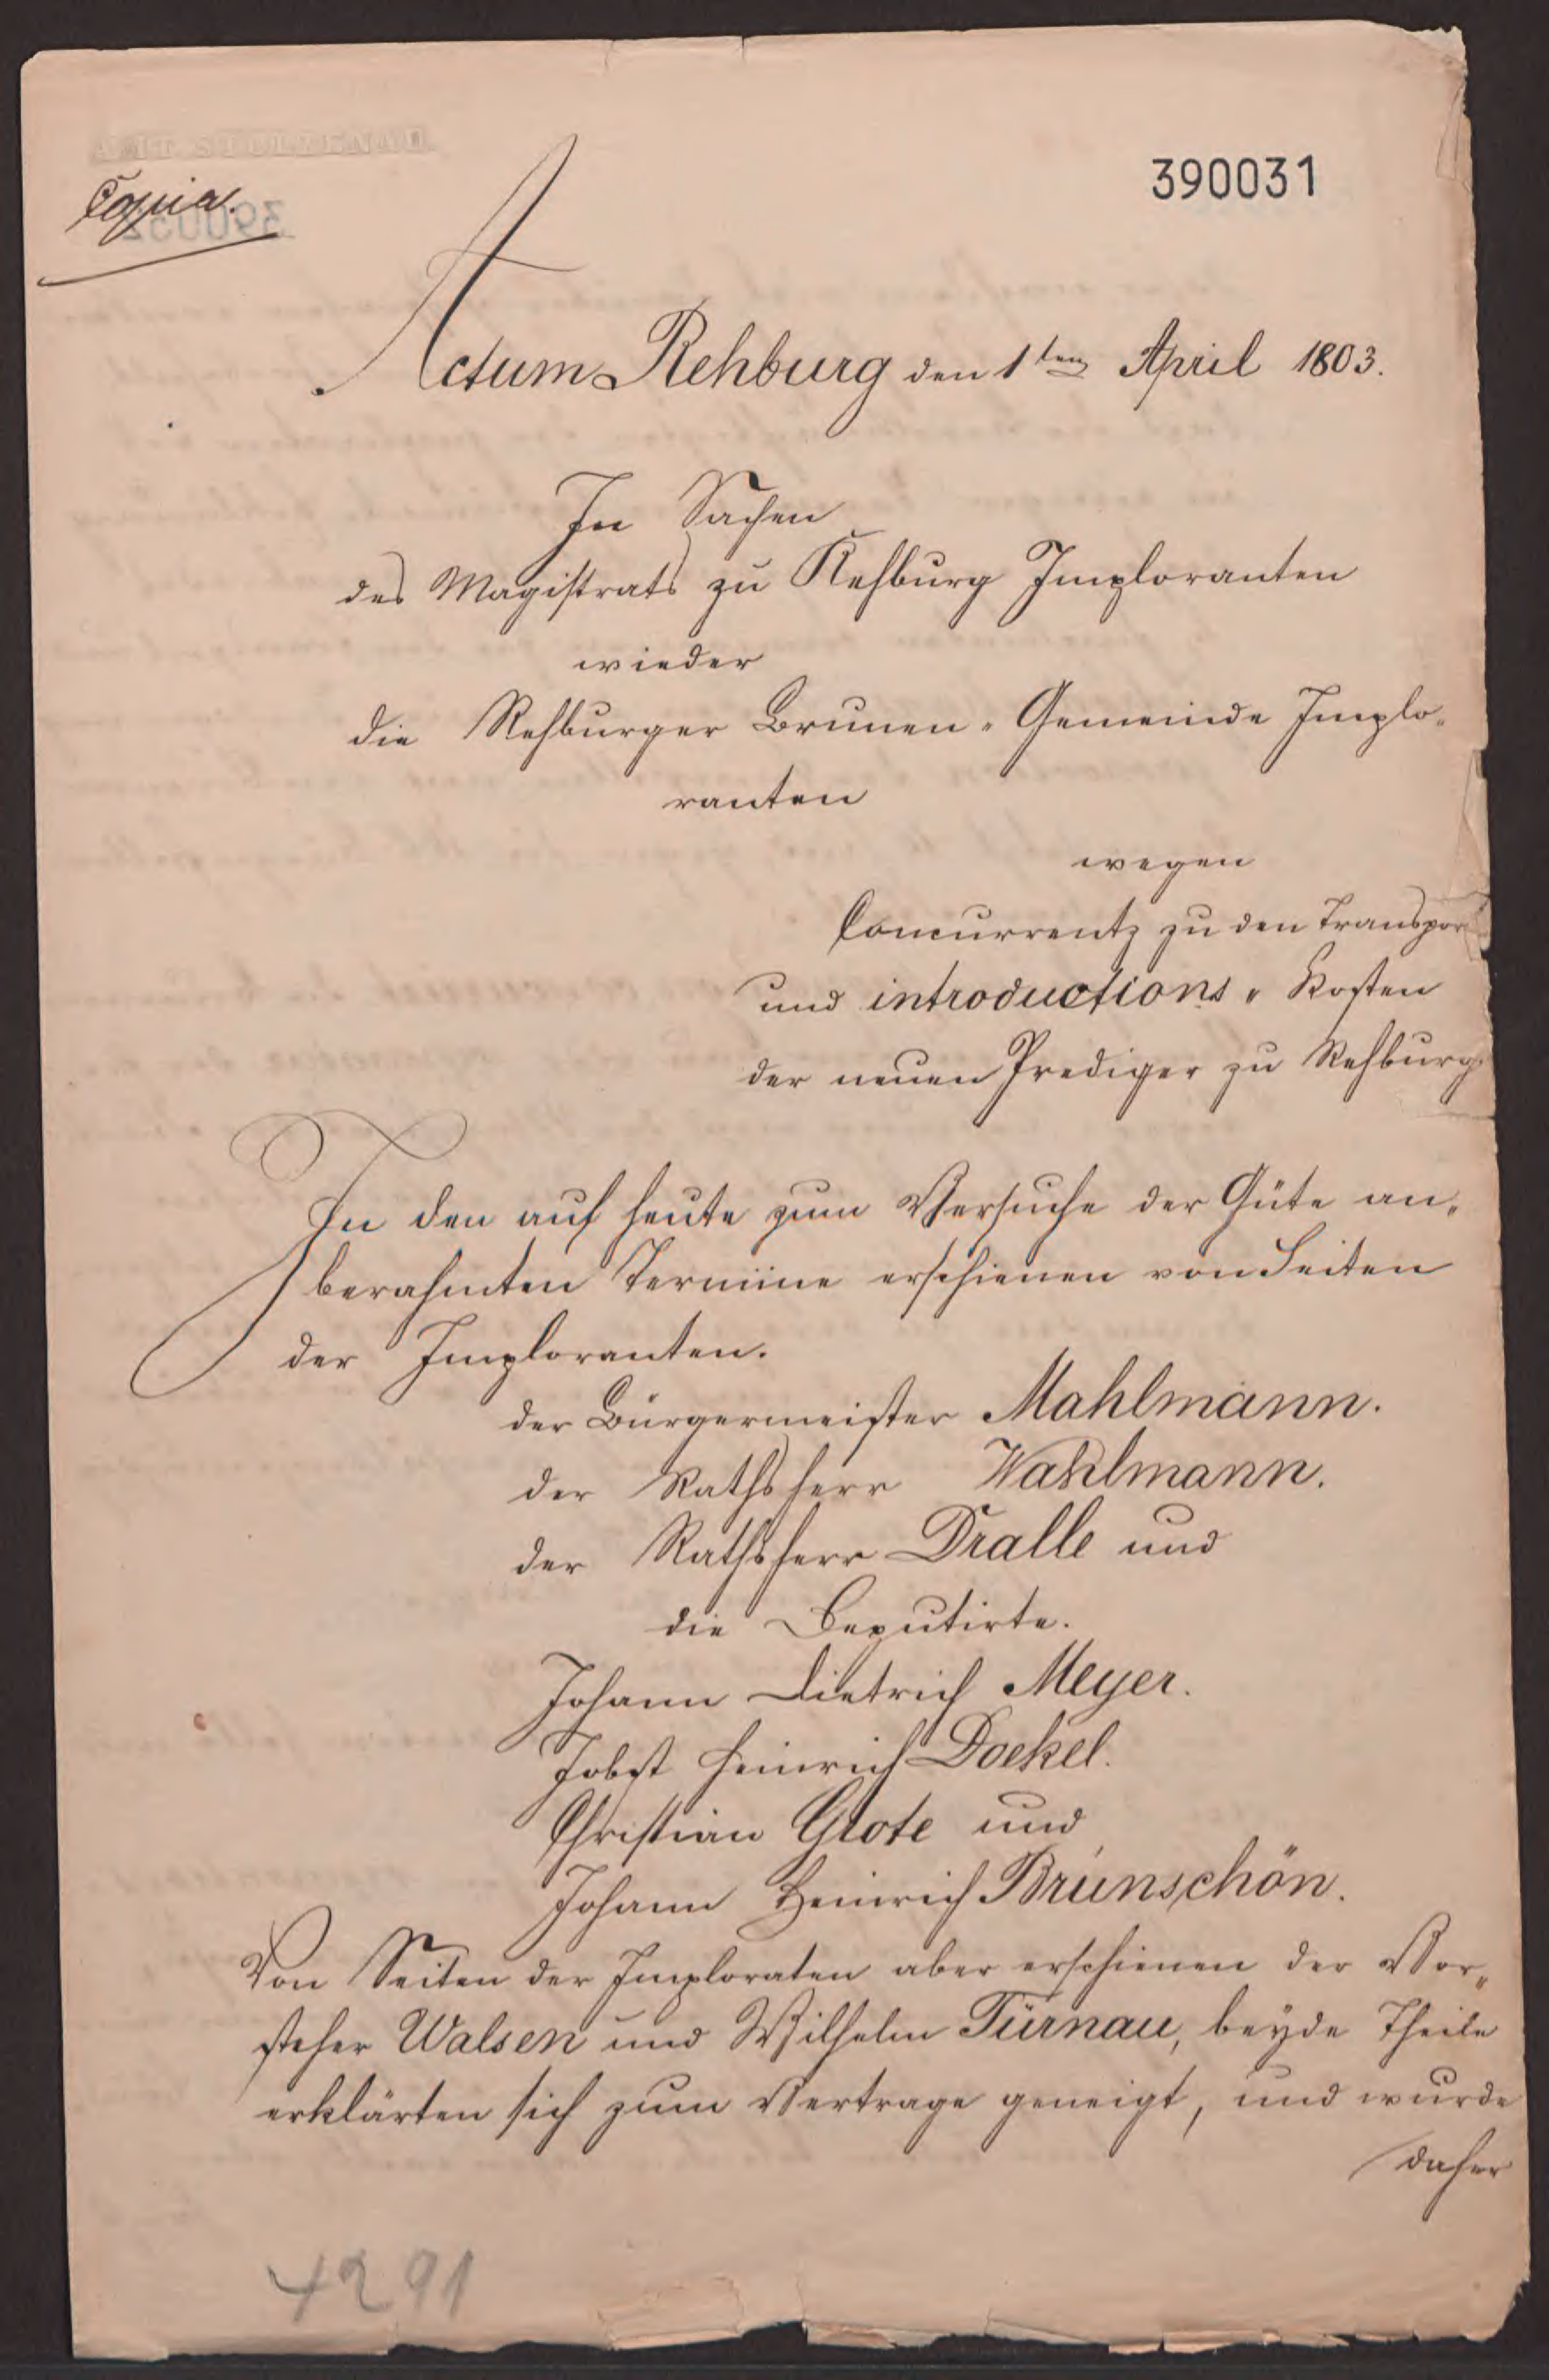 AMT STOLZENAU
390031
Copia.
Actum Rehburg den 1ten April 1803.
In Sachen
des Magistrats zu Rehburg Imploranten
wieder
die Rehburger Brunen-Gemeinde Implo-
ranten
wegen
Concurrentz zu den Transpor
und introductions-Kosten
der neuen Prediger zu Rehburg
In den auf heute zum Versuche der Güte an-
berahmten Termine erschienen von Seiten
der Imploranten.
der Bürgermeister Mahlmann.
der Rathsherr Wahlmann.
der Rathsherr Dralle und
die Deputirte.
Johann Dietrich Meyer.
Jobst Heinrich Dockel.
Christian Grote und
Johann Heinrich Brunschön.
Von Seiten der Imploraten aber erschienen der Vor-
steher Walsen und Wilhelm Türnau, beyde Theile
erklärten sich zum Vertrage geneigt, und wurde
daher
4291